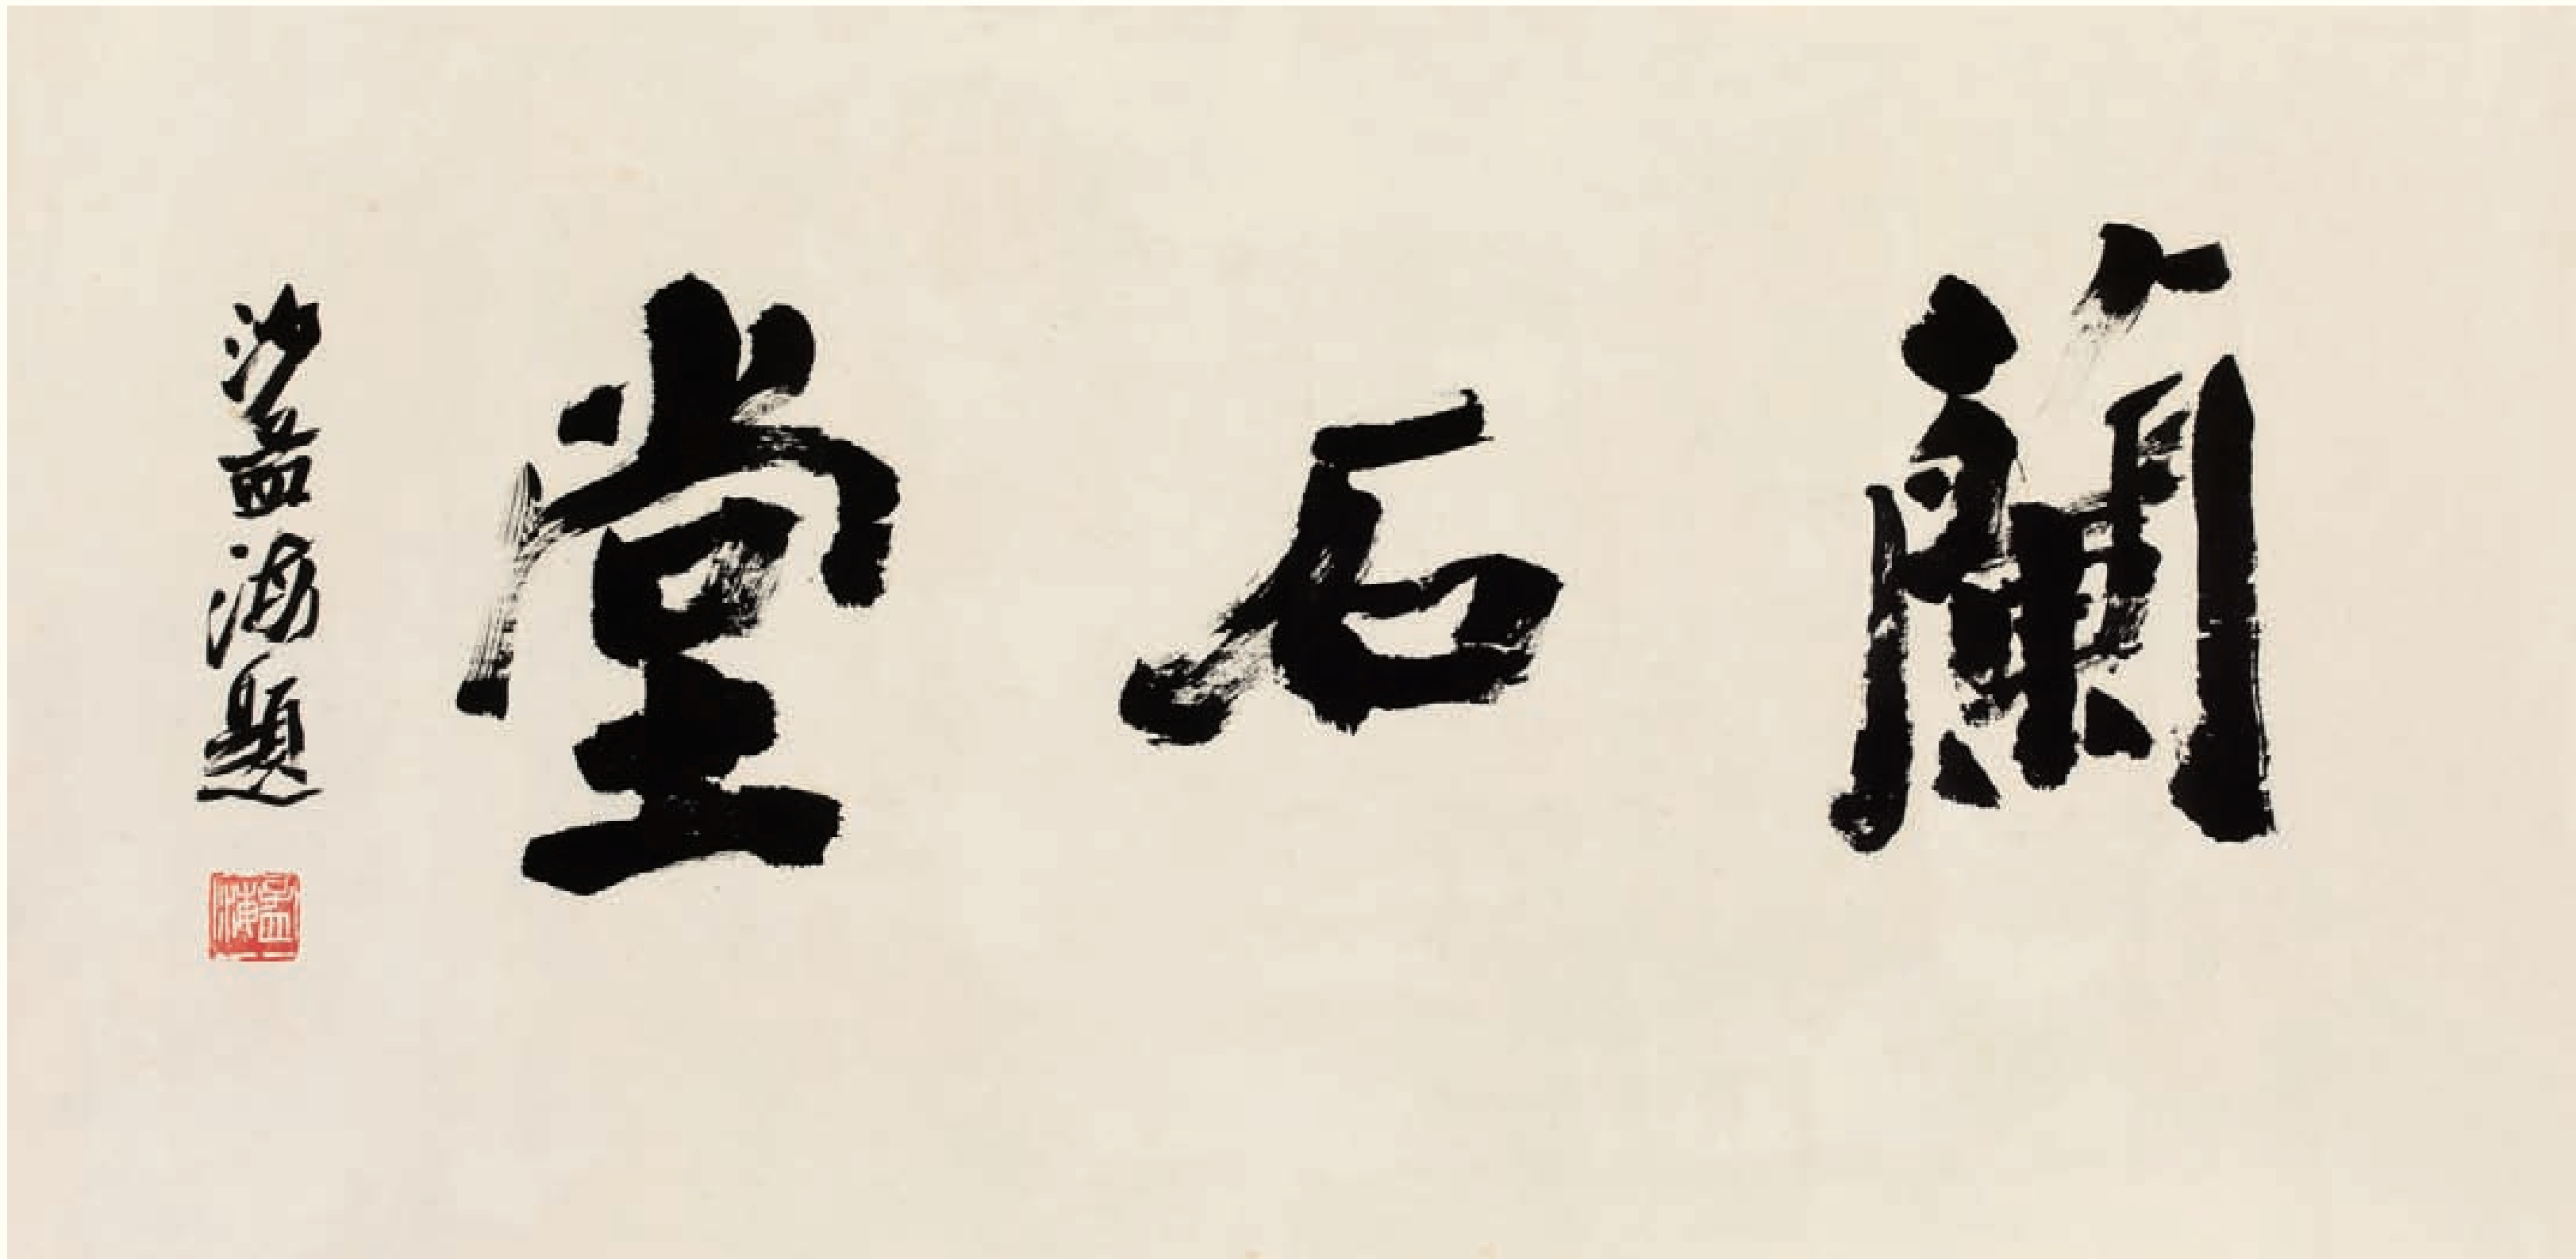 蘭石堂
沙孟海題
孟海